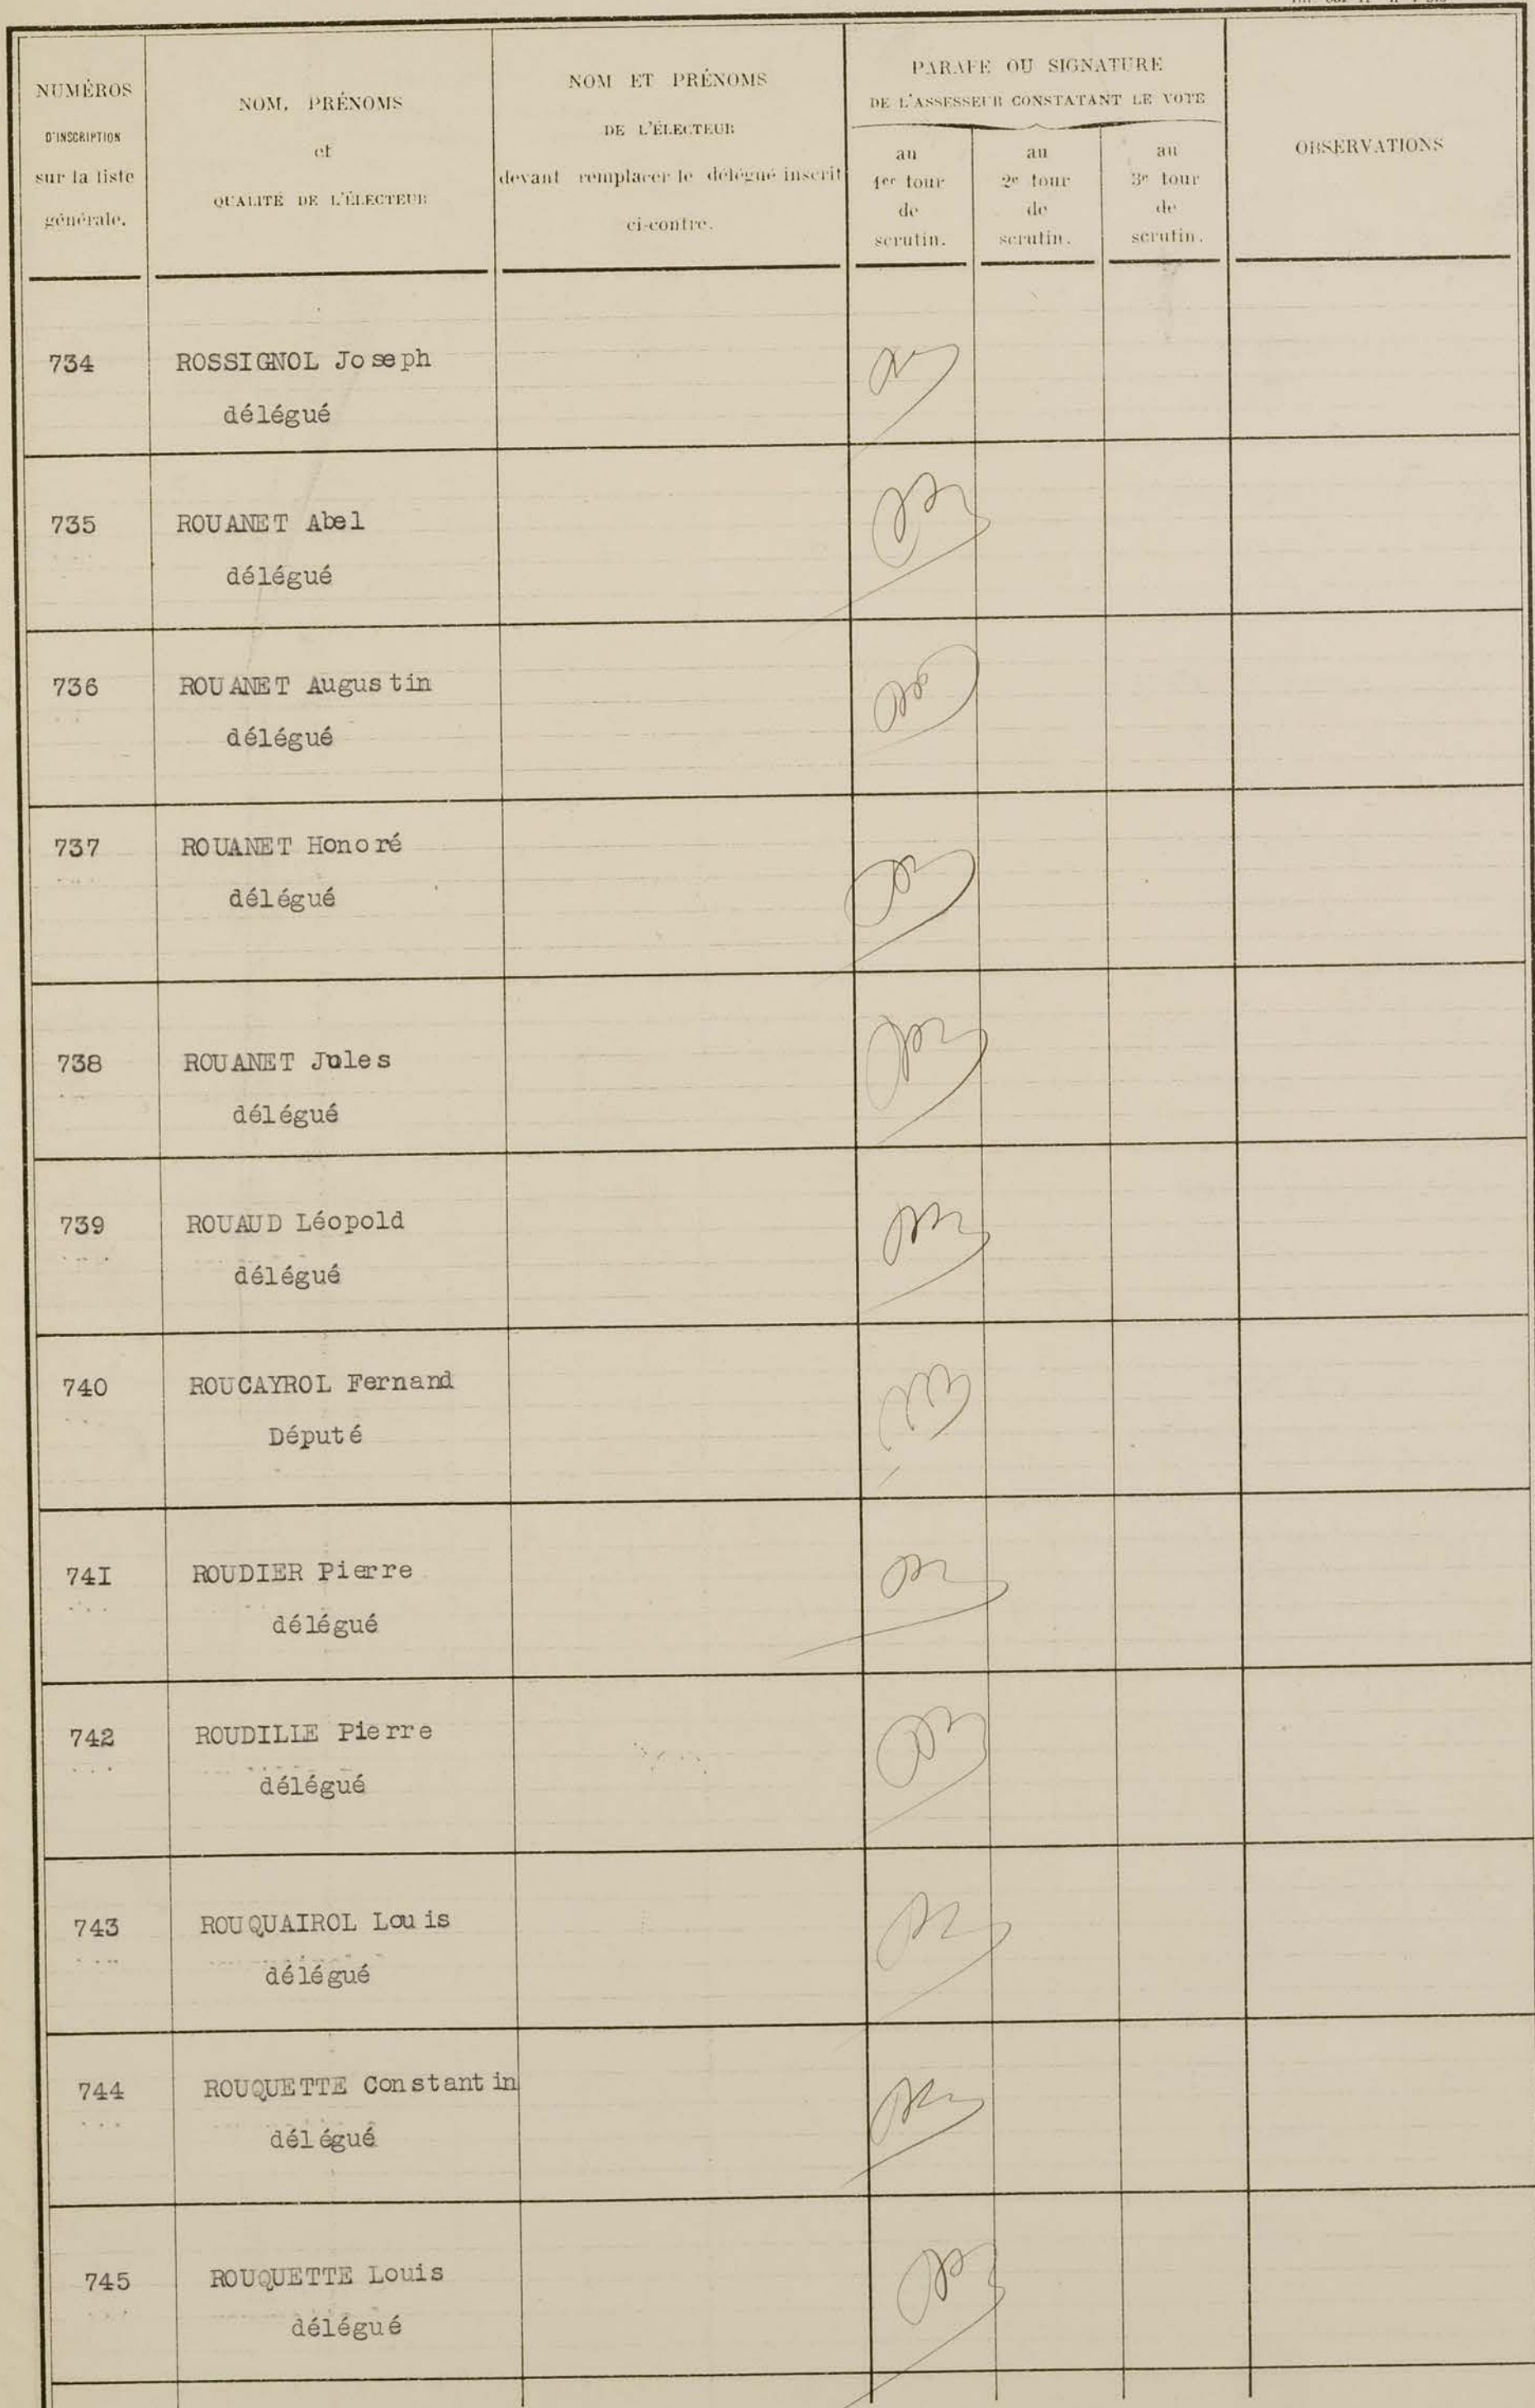 NUMÉROS
D'INSCRIPTION
sur la liste
générale.
NOM, PRÉNOMS
et
QUALITÉ DE L'ÉLECTEUR
NOM ET PRÉNOMS
DE L'ÉLECTEUR
devant remplacer le délégué inscrit
ci-contre.
PARAFE OU SIGNATURE
DE L'ASSESSEUR CONSTATANT LE VOTE
au
1er tour
de
scrutin.
au
2e tour
de
scrutin.
au
3e tour
de
scrutin.
OBSERVATIONS
734 ROSSIGNOL Joseph
délégué
735 ROUANET Abel
délégué
736 ROUANET Augustin
délégué
737 ROUANET Honoré
délégué
738 ROUANET Jules
délégué
739 ROUAUD Léopold
délégué
740 ROUCAYROL Fernand
Député
74I ROUDIER Pierre
délégué
742 ROUDILLE Pierre
délégué
743 ROUQUAIROL Louis
délégué
744 ROUQUETTE Constantin
délégué
745 ROUQUETTE Louis
délégué